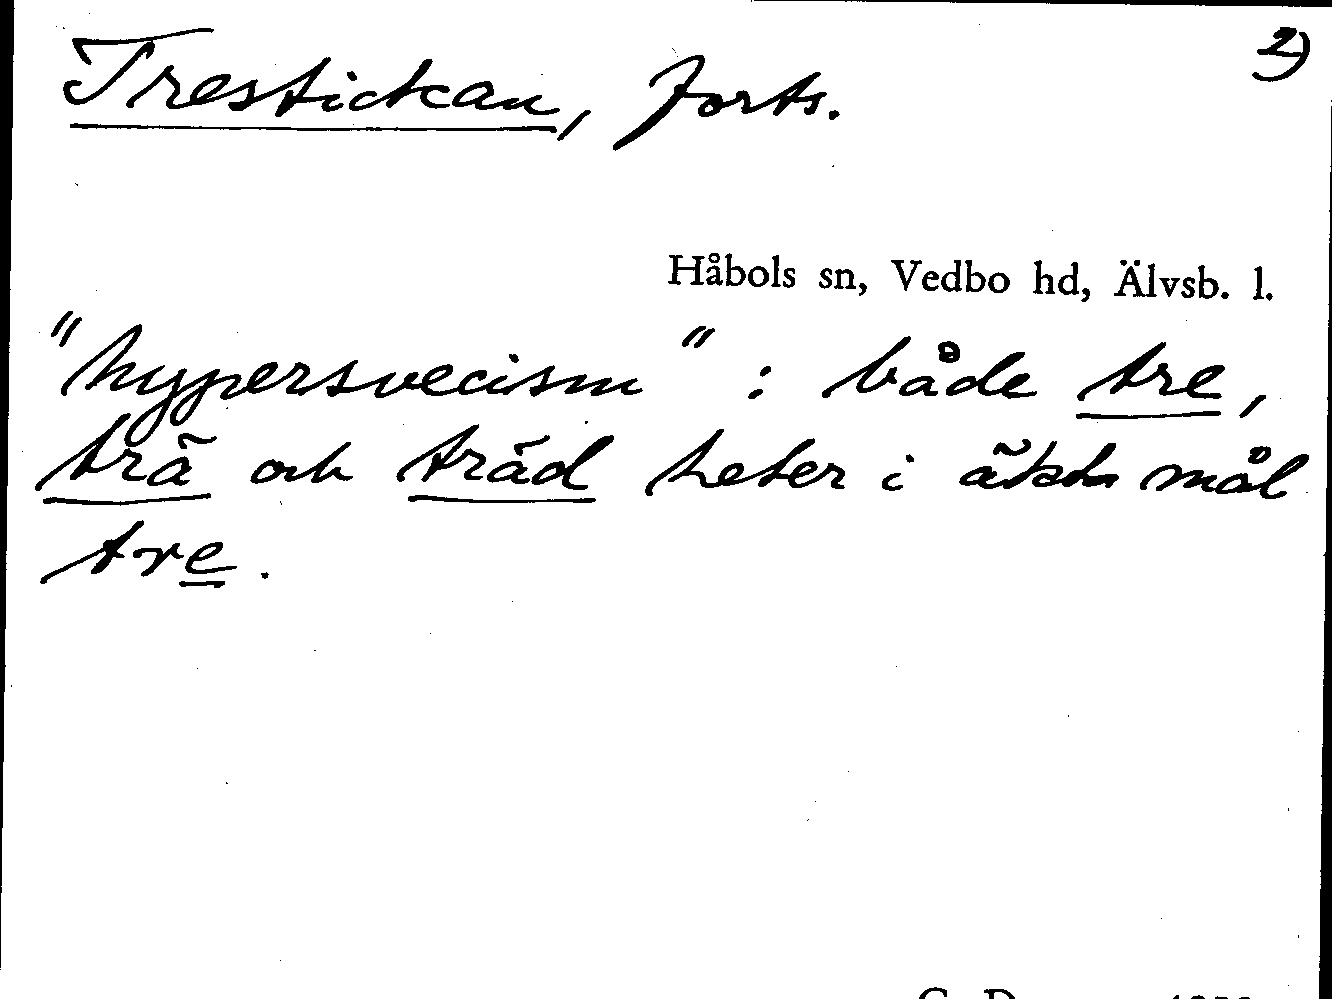 2)
Trestickan, forts.
Håbols sn, Vedbo hd, Älvsb. l.
"hypersvecism": både tre,
trä och träd heter i äkta mål
tre.